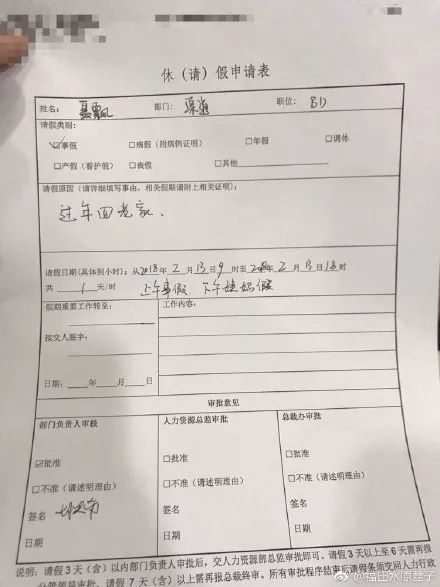 休（请）假申请表
姓名： 部门：渠道 职位：BD
请假类别：
☑事假 □病假（附病例证明） □年假 □调休
□产假（看护假） □丧假 □其他
请假原因（请详细填写事由，相关假期请附上相关证明）：
过年回老家、
请假日期（具体到小时）：从2018年2月13日9时至2018年2月13日18时
共1天/时 上午事假 下午姨妈假
假期重要工作转至： 工作内容：
接交人签字：
日期：____年____月____日
审批意见
部门负责人审核 人力资源总监审批 总裁办审批
☑批准 □批准 □批准
□不准（请述明理由） □不准（请述明理由） □不准（请述明理由）
签名 签名 签名
日期 日期 日期
说明：请假 3 天（含）以内部门负责人审批后，交人力资源部总监审批即可。请假 3 天以上至 6 天需再报
分管领导审批。请假 7 天（含）以上需再报总裁终审。所有审批程序结束后请假条须交回人力行政
@福田水原噩子